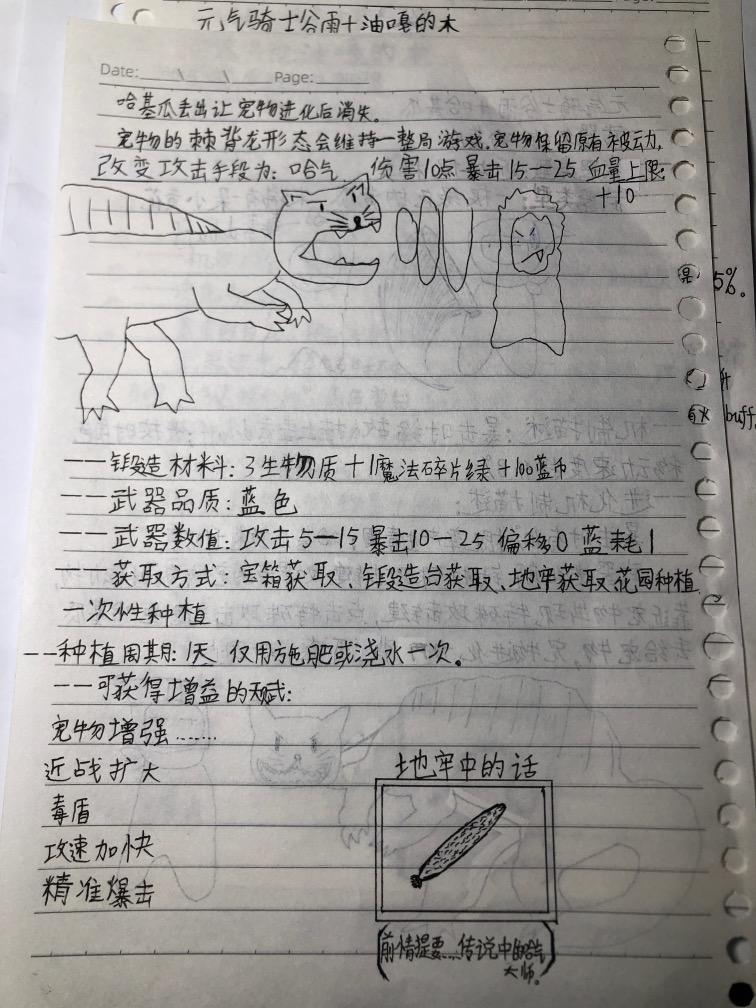 元气骑士谷雨+油嘎的木
Date: / / Page:
哈基瓜丢出让宠物进化后消失。
宠物的棘背龙形态会维持一整局游戏,宠物保留原有被动,
改变攻击手段为:哈气 伤害10点 暴击15—25 血量上限
+10
5%。
buff
——锻造材料:3生物质+1魔法碎片绿+100蓝币
——武器品质:蓝色
——武器数值:攻击5—15 暴击10—25 偏移0 蓝耗1
——获取方式:宝箱获取、锻造台获取、地牢获取 花园种植
一次性种植
——种植周期:1天 仅用施肥或浇水一次。
——可获得增益的天赋:
宠物增强……
近战扩大
毒盾
攻速加快
精准爆击
地牢中的话
前情提要…传说中的哈气
大师。